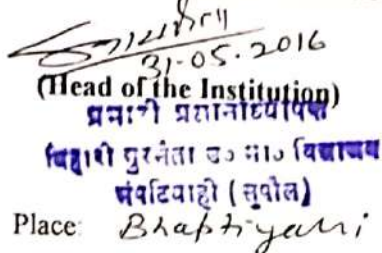 31-05.2016
(Head of the Institution)
प्रभारी प्रधानाध्यापक
उ० मा० विद्यालय
(सुपौल)
Place: Bhaptiyahi